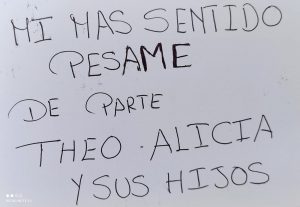 MI MAS SENTIDO
PESAME
DE PARTE
THEO . ALICIA
Y SUS HIJOS